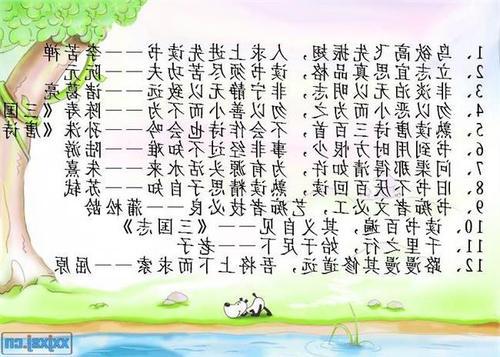 1、鸟欲高飞先振翅，人求上进先读书——李苦禅
2、立志宜思真品格，读书须尽苦功夫——阮元
3、非淡泊无以明志，非宁静无以致远——诸葛亮
4、勿以恶小而为之，勿以善小而不为——陈寿《三国
5、熟读唐诗三百首，不会作诗也会吟——孙洙《唐诗
6、书到用时方恨少，事非经过不知难——陆游
7、问渠那得清如许，为有源头活水来——朱熹
8、旧书不厌百回读，熟读精思子自知——苏轼
9、书痴者文必工，艺痴者技必良——蒲松龄
10、读书百遍，其义自见——《三国志》
11、千里之行，始于足下——老子
12、路漫漫其修道远，吾将上下而求索——屈原
xxjxsj.cn